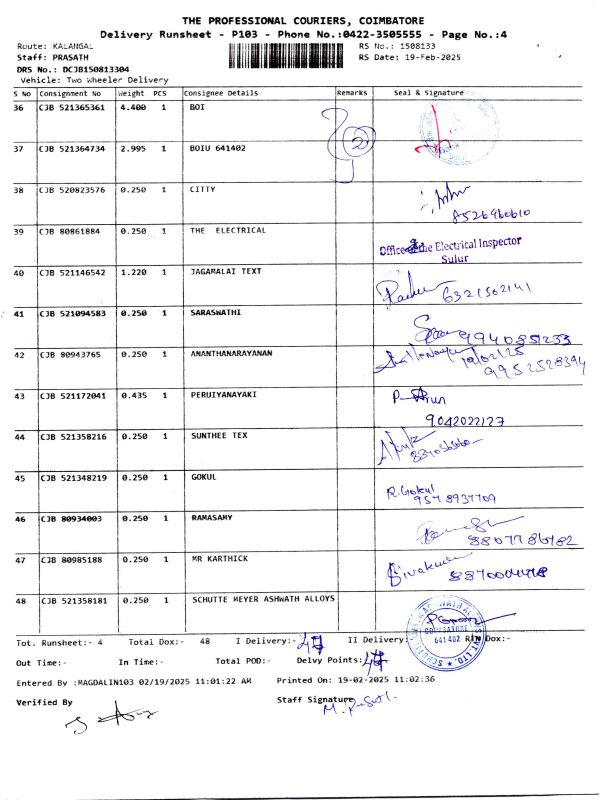 THE PROFESSIONAL COURIERS, COIMBATORE
Delivery Runsheet - P103 - Phone No.:0422-3505555 - Page No.:4
Route: KALANGAL RS No.: 1508133
Staff: PRASATH RS Date: 19-Feb-2025
DRS No.: DCJB150813304
Vehicle: Two Wheeler Delivery
S No Consignment No Weight PCS Consignee Details Remarks Seal & Signature
36 CJB 521365361 4.400 1 BOI
2
37 CJB 521364734 2.995 1 BOIU 641402
38 CJB 520823576 0.250 1 CITTY
8526960610
39 CJB 80861884 0.250 1 THE ELECTRICAL
Office the Electrical Inspector
Sulur
40 CJB 521146542 1.220 1 JAGAMALAI TEXT
6321502141
41 CJB 521094583 0.250 1 SARASWATHI
9940851233
42 CJB 80943765 0.250 1 ANANTHANARAYANAN
19/02/25
9952528394
43 CJB 521172041 0.435 1 PERUIYANAYAKI
P-Arun
9042022127
44 CJB 521358216 0.250 1 SUNTHEE TEX
45 CJB 521348219 0.250 1 GOKUL
R.Gokul
9578937709
46 CJB 80934003 0.250 1 RAMASAMY
8807786782
47 CJB 80985188 0.250 1 MR KARTHICK
Sivakumar
48 CJB 521358181 0.250 1 SCHUTTE MEYER ASHWATH ALLOYS
COIMBATORE
641 402
Tot. Runsheet:- 4 Total Dox:- 48 I Delivery:- 47 II Delivery:- RTN Dox:-
Out Time:- In Time:- Total POD:- Delvy Points:- 47
Entered By :MAGDALIN103 02/19/2025 11:01:22 AM Printed On: 19-02-2025 11:02:36
Verified By Staff Signature